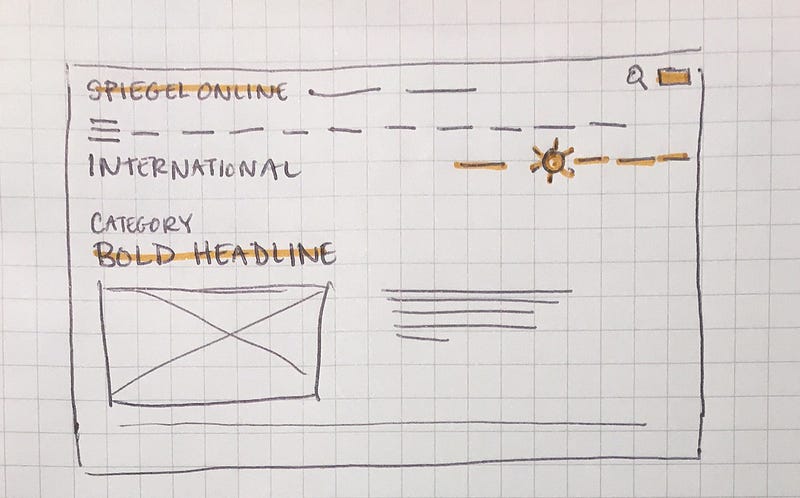 SPIEGEL ONLINE
INTERNATIONAL
CATEGORY
BOLD HEADLINE